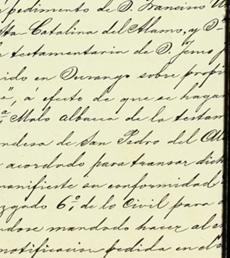 pedimento de D. Francisco A
sta Catalina del Alamo, y D
testamentaria de D.
ido en Durango sobre propi
á efecto de que se haga
Malo albacea de la testam
ondesa de San Pedro del Al
acordado para transar dich
manifieste su conformidad
zgado 6º de lo Civil para
dose mandado hacer al e
notificacion pedida en el